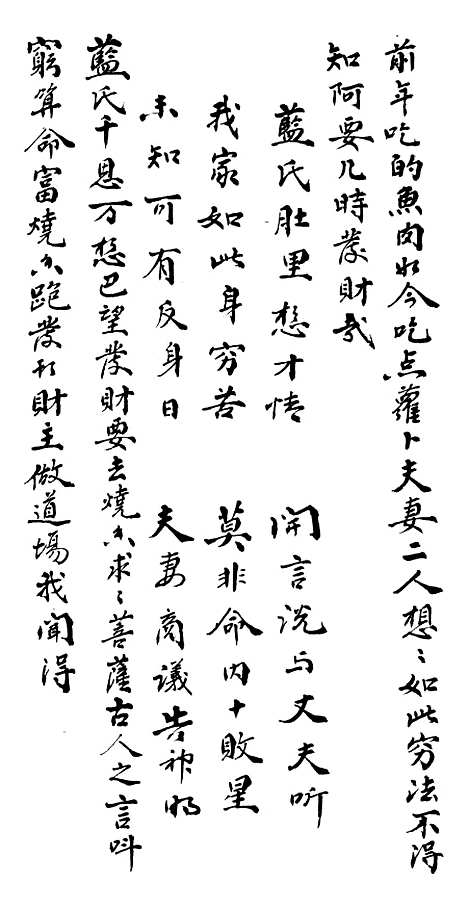 前年吃的魚肉如今吃点蘿卜夫妻二人想〻如此穷法不得
知阿要几時發財哉
藍氏肚里想才情 開言説与丈夫听
我家如此身穷苦 莫非命内十敗星
未知可有反身日 夫妻商議告神明
藍氏千恩万想巴望發財要去燒香求〻菩薩古人之言呌
窮算命富燒香跑發財主做道場我聞得